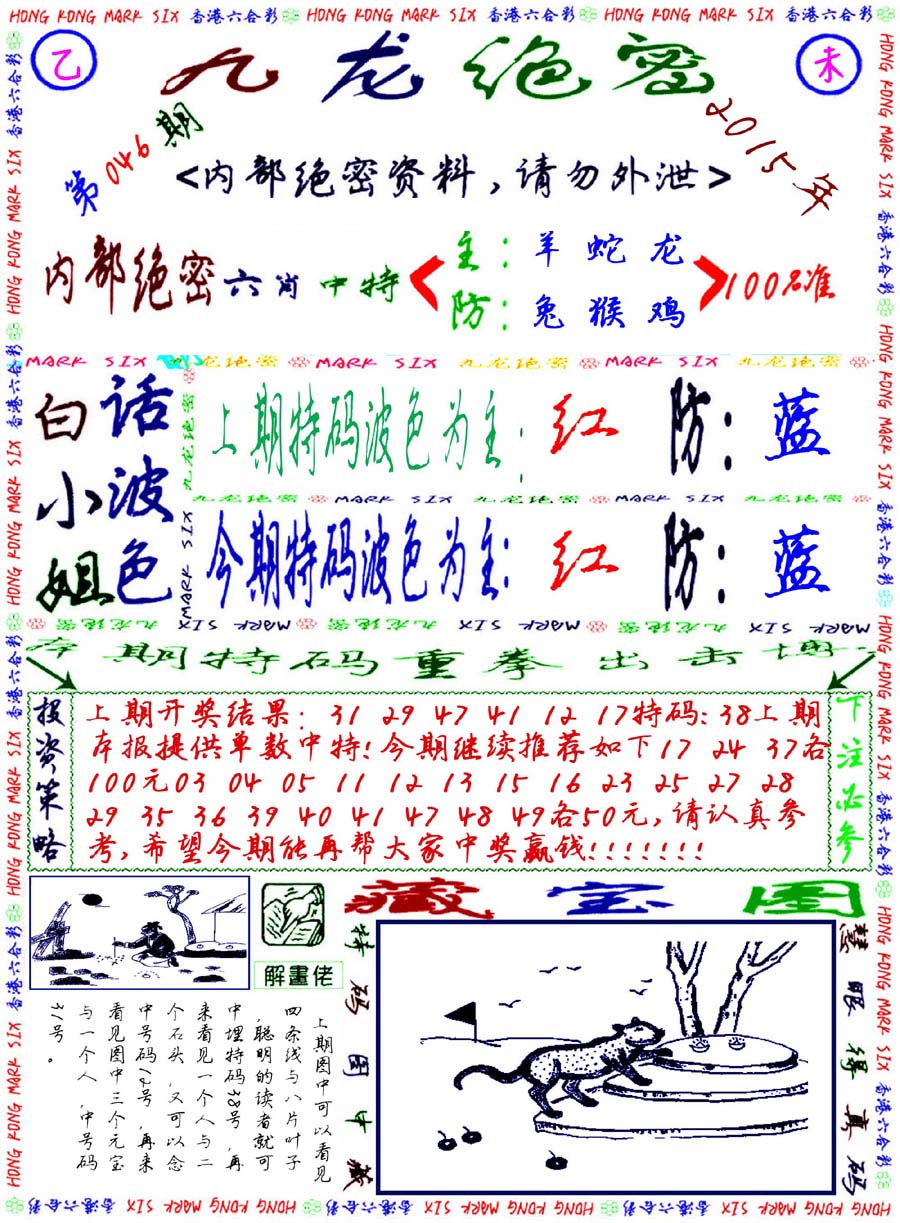 HONG KONG MARK SIX 香港六合彩 HONG KONG MARK SIX 香港六合彩 HONG KONG MARK SIX 香港六合彩
乙 九龙绝密 未
第046期
2015年
<内部绝密资料,请勿外泄>
内部绝密六肖中特
主:羊蛇龙
防:兔猴鸡
100%准
MARK SIX 九龙绝密 MARK SIX 九龙绝密 MARK SIX 九龙绝密
白话
小波
姐色
上期特码波色为主:红 防:蓝
九龙绝密 MARK SIX 九龙绝密 MARK SIX 九龙绝密
今期特码波色为主:红 防:蓝
九龙绝密 MARK SIX 九龙绝密 MARK SIX 九龙绝密 MARK SIX
本期特码重拳出击博
投资策略
上期开奖结果: 31 29 47 41 12 17特码:38上期
本报提供单数中特!今期继续推荐如下17 24 37各
100元03 04 05 11 12 13 15 16 23 25 27 28
29 35 36 39 40 41 47 48 49各50元,请认真参
考,希望今期能再帮大家中奖赢钱!!!!!!!
下注必参
藏宝图
解畫佬
上期图中可以看见
四条线与八片叶子
,聪明的读者就可
中埋特码38号,再
来看见一个人与二
个石头,又可以念
中号码12号,再来
看见图中三个元宝
与一个人,中号码
31号。
特码图中藏
慧眼得真码
HONG KONG MARK SIX 香港六合彩 HONG KONG MARK SIX 香港六合彩 HONG KONG MARK SIX 香港六合彩